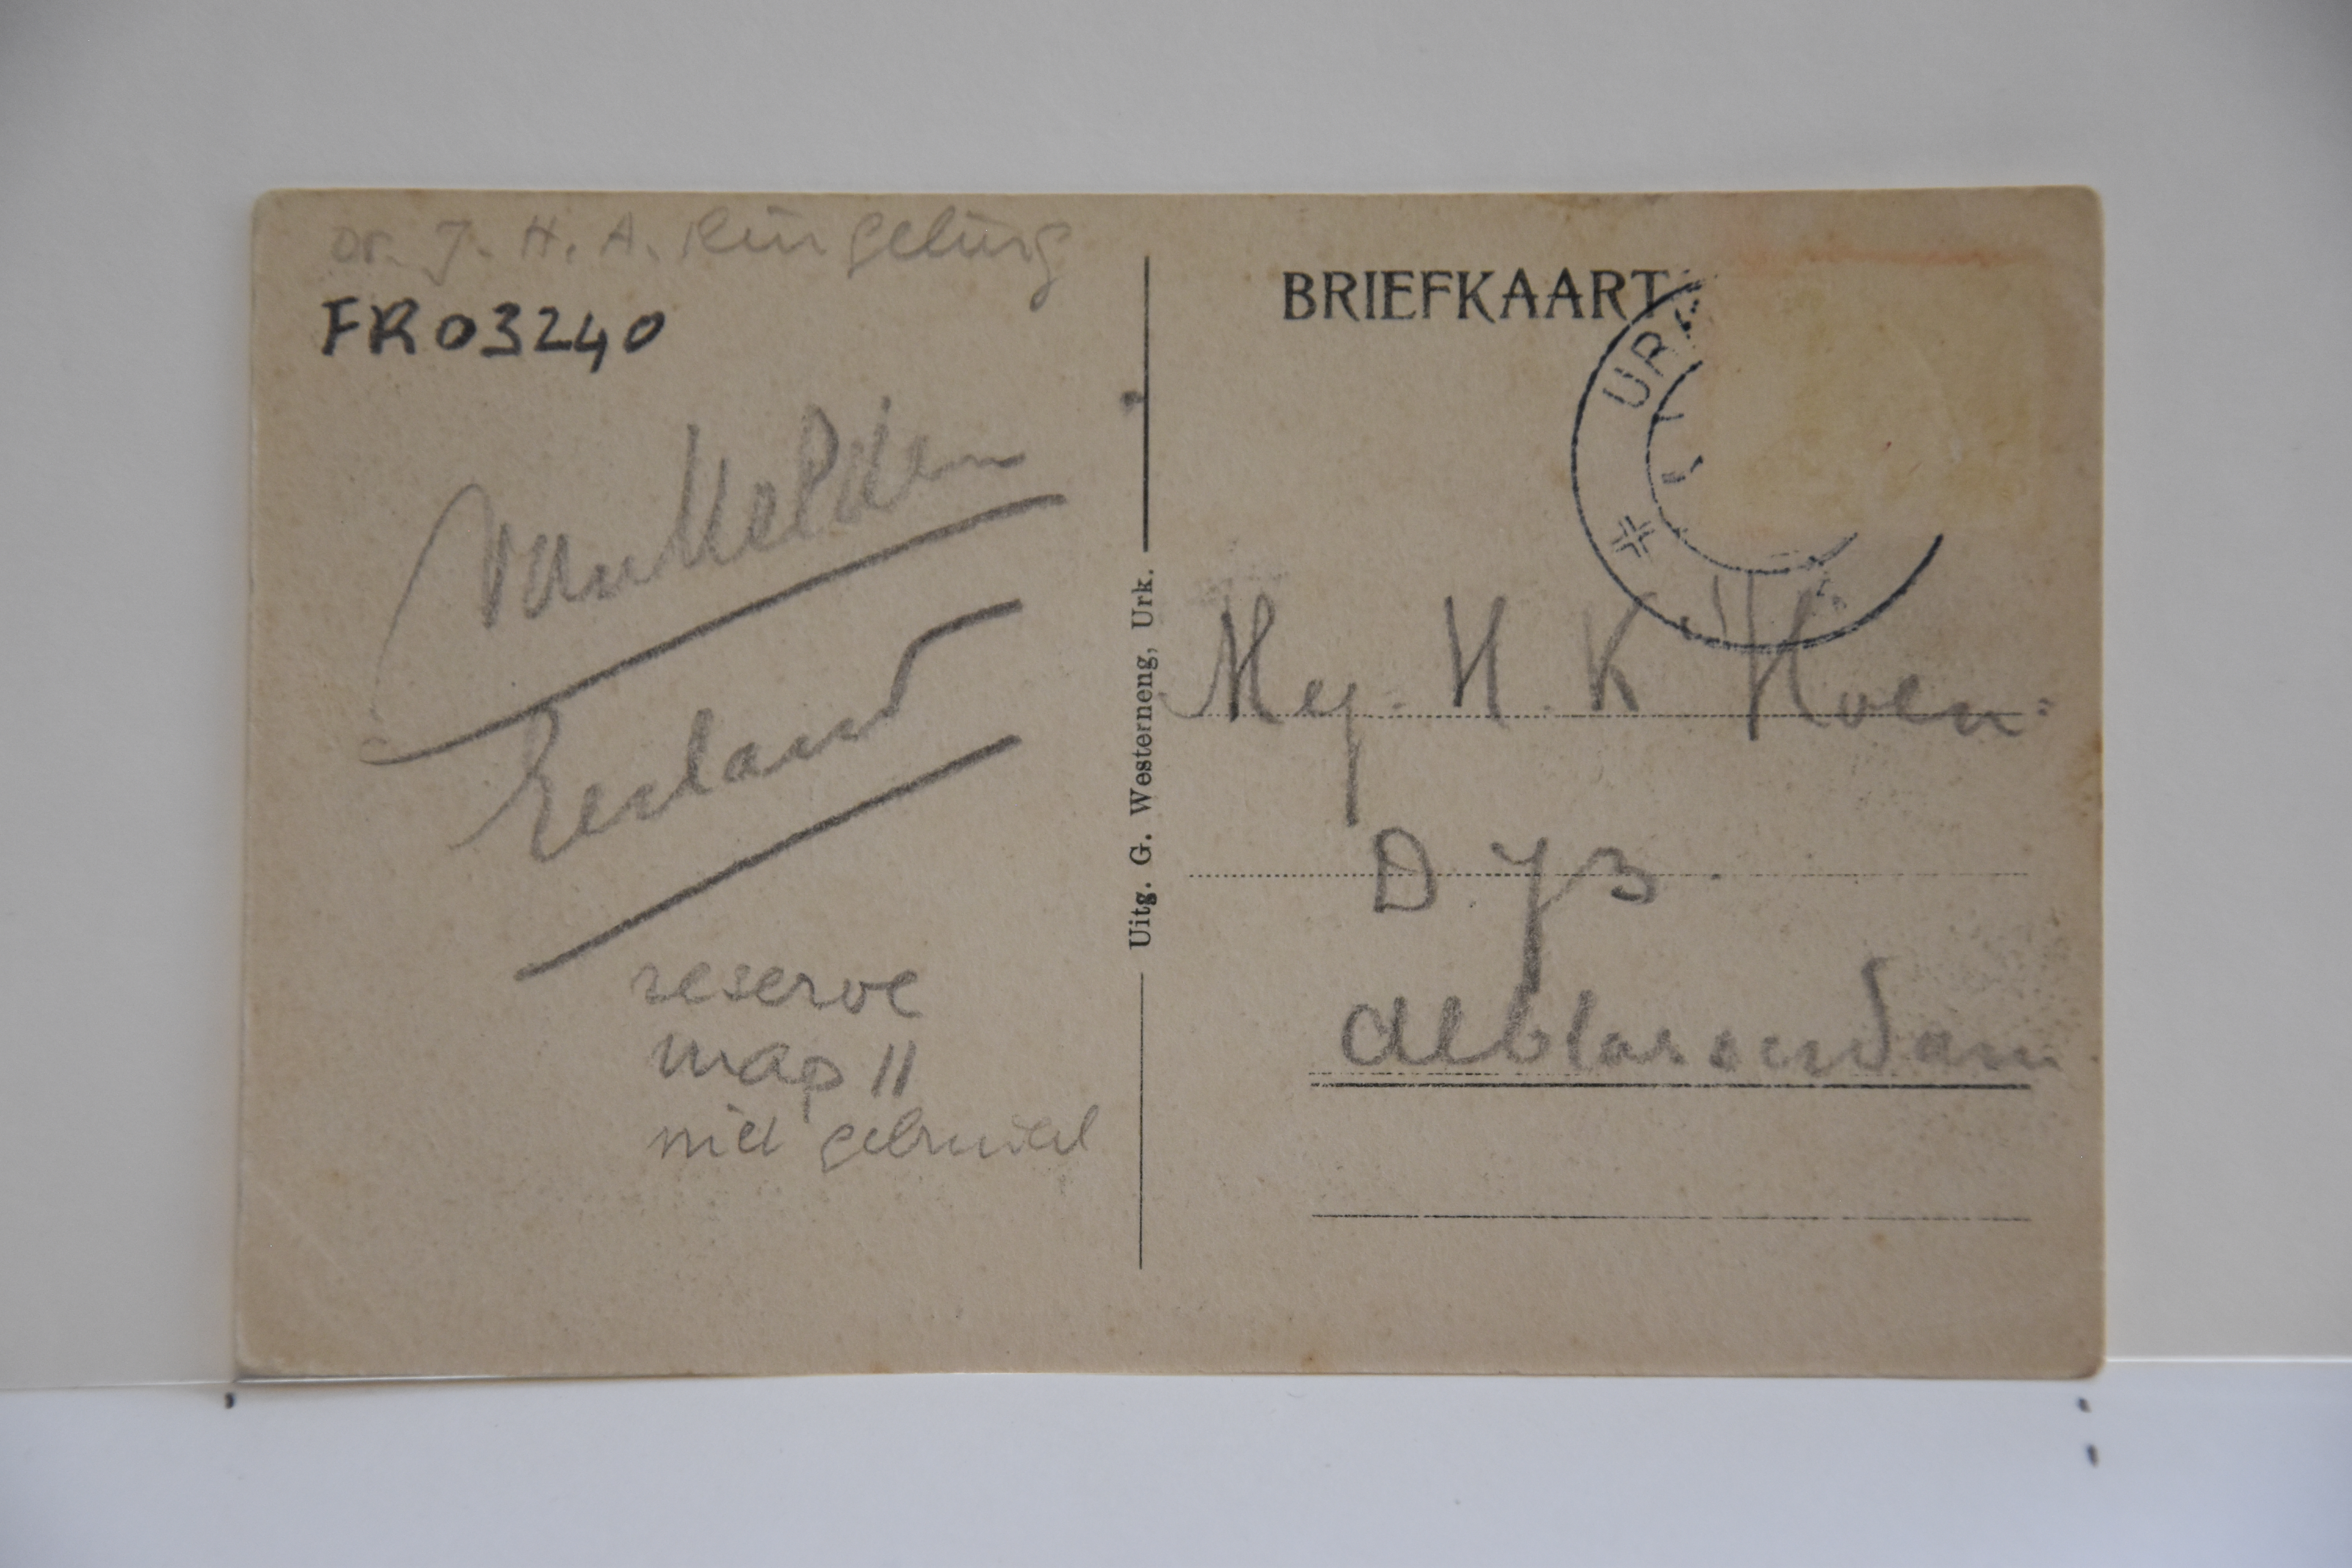 Dr. J. H. A. Ringeling
FR03240
reserve
map 11
niet gebruikt
Uitg. G. Westerneng, Urk.
BRIEFKAART
URK
Mej. H. K Hoen
D 73
Alblasserdam